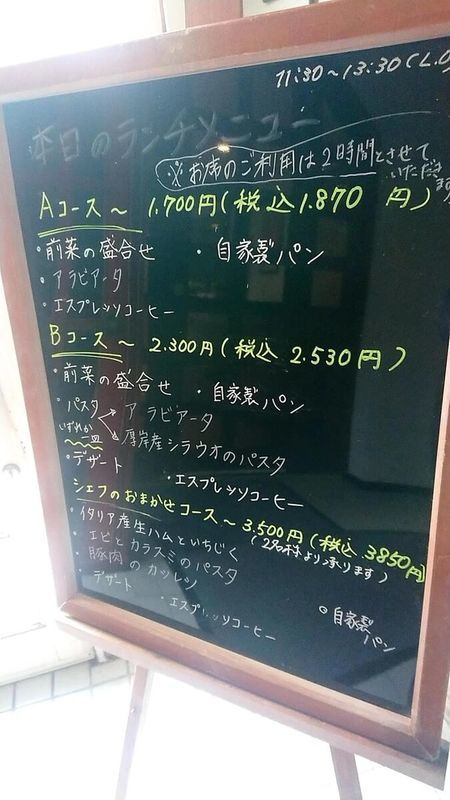 11:30～13:30(L.O
本日のランチメニュー
※お席のご利用は2時間とさせて
いただきます
Aコース～ 1.700円(税込1.870 円)
・前菜の盛合せ ・自家製パン
・アラビアータ
・エスプレッソコーヒー
Bコース～ 2.300円(税込 2.530円)
・前菜の盛合せ ・自家製パン
・パスタ アラビアータ
いずれか一皿 厚岸産シラウオのパスタ
・デザート ・エスプレッソコーヒー
シェフのおまかせコース～3,500円(税込3850円)
(2名様より承ります)
・イタリア産生ハムといちじく
・エビとカラスミのパスタ
・豚肉のカツレツ
・デザート ・エスプレッソコーヒー
・自家製パン